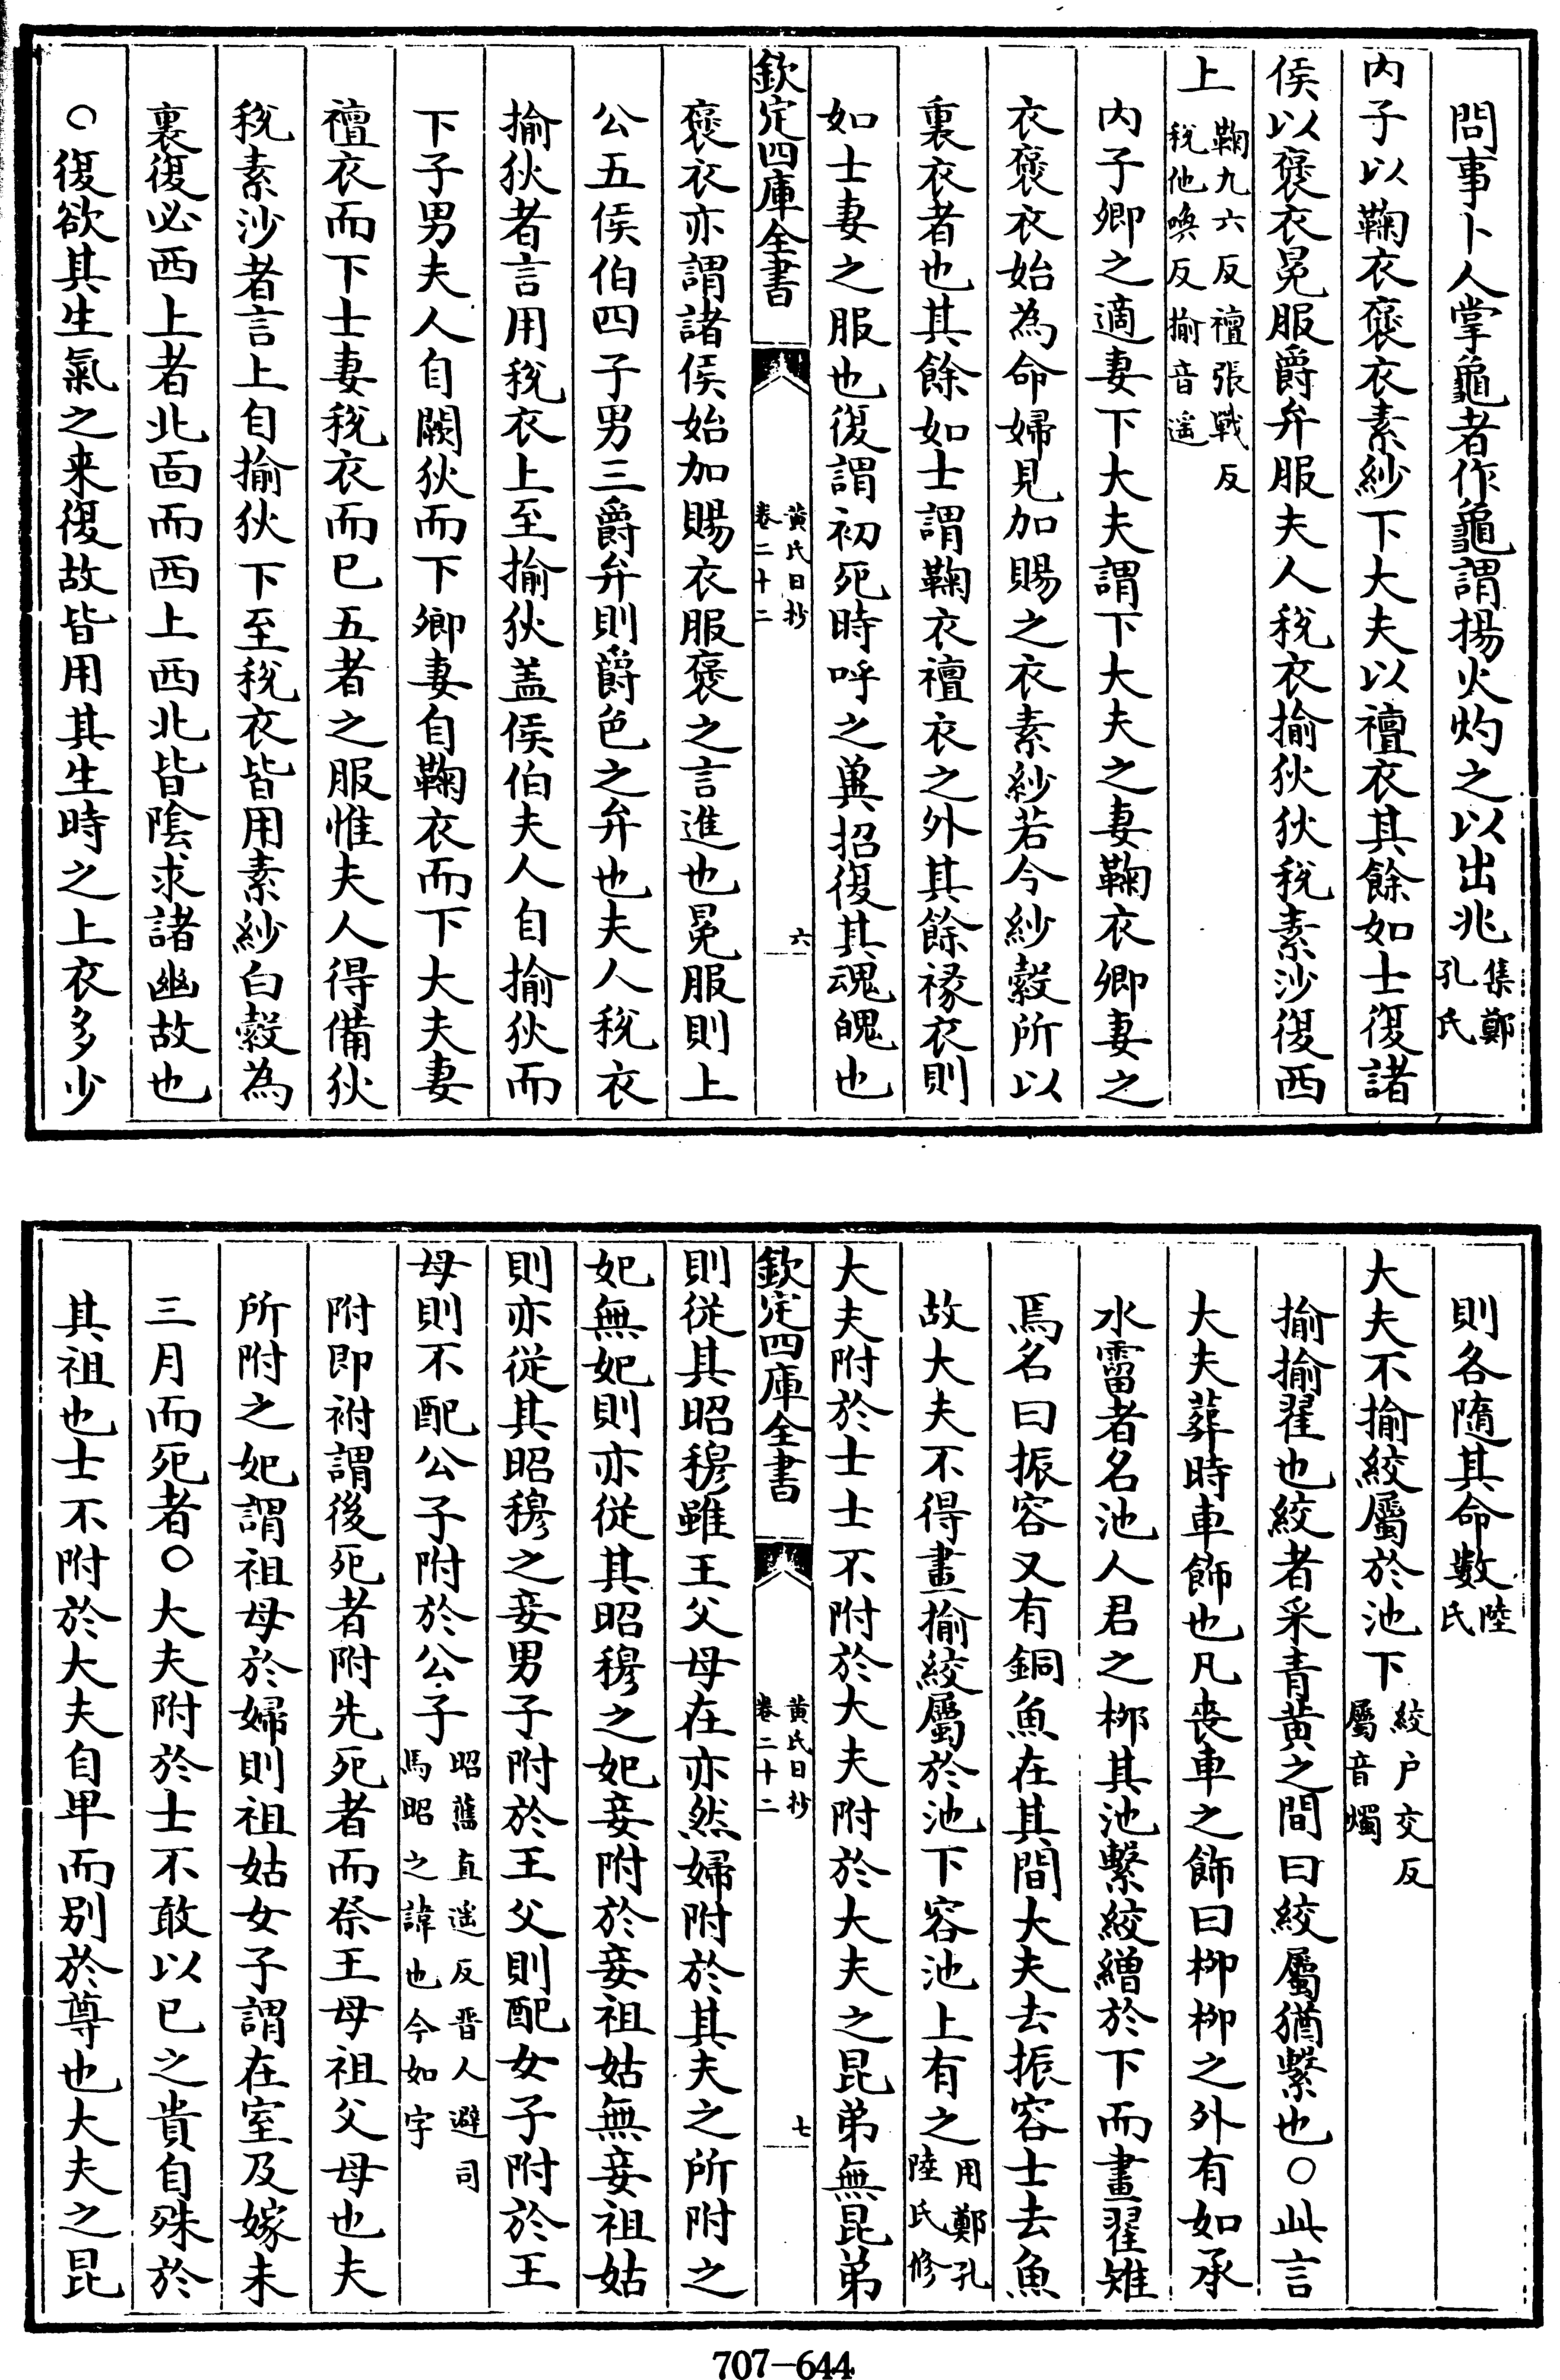 問事卜人掌龜者作龜謂揚火灼之以出兆集鄭孔氏
内子以鞠衣褒衣素紗下大夫以襢衣其餘如士復諸
侯以褒衣冕服爵弁服夫人稅衣揄狄狄稅素沙復西
上鞠九六反襢張戰反稅他喚反揄音遥
内子卿之適妻下大夫謂下大夫之妻鞠衣卿妻之
衣褒衣始為命婦見加賜之衣素紗若今紗縠所以
裏衣者也其餘如士謂鞠衣襢衣之外其餘褖衣則
如士妻之服也復謂初死時呼之兼招復其魂魄也
欽定四庫全書
黄氏日抄
卷二十二
六
褒衣亦謂諸侯始加賜衣服褒之言進也冕服則上
公五侯伯四子男三爵弁則爵色之弁也夫人稅衣
揄狄者言用稅衣上至揄狄盖侯伯夫人自揄狄而
下子男夫人自闕狄而下卿妻自鞠衣而下大夫妻
襢衣而下士妻稅衣而已五者之服惟夫人得備狄
稅素沙者言上自揄狄下至稅衣皆用素紗白縠為
裏復必西上者北面而西上西北皆陰求諸幽故也
○復欲其生氣之来復故皆用其生時之上衣多少
則各隨其命數陸氏
大夫不揄絞屬於池下絞户交反屬音燭
揄揄翟也絞者采青黄之間曰絞屬猶繫也○此言
大夫葬時車飾也凡喪車之飾曰柳柳之外有如承
水霤者名池人君之柳其池繫絞繒於下而畫翟雉
焉名曰振容又有銅魚在其間大夫去振容士去魚
故大夫不得畫揄絞屬於池下容池上有之用鄭孔陸氏修
大夫附於士士不附於大夫附於大夫之昆弟無昆弟
欽定四庫全書
黄氏日抄
卷二十二
七
則從其昭穆雖王父母在亦然婦附於其夫之所附之
妃無妃則亦從其昭穆之妃妾附於妾祖姑無妾祖姑
則亦從其昭穆之妾男子附於王父則配女子附於王
母則不配公子附於公子昭舊直遥反晋人避司馬昭之諱也今如字
附即祔謂後死者附先死者而祭王母祖父母也夫
所附之妃謂祖母於婦則祖姑女子謂在室及嫁未
三月而死者○大夫附於士不敢以已之貴自殊於
其祖也士不附於大夫自卑而别於尊也大夫之昆
707-644